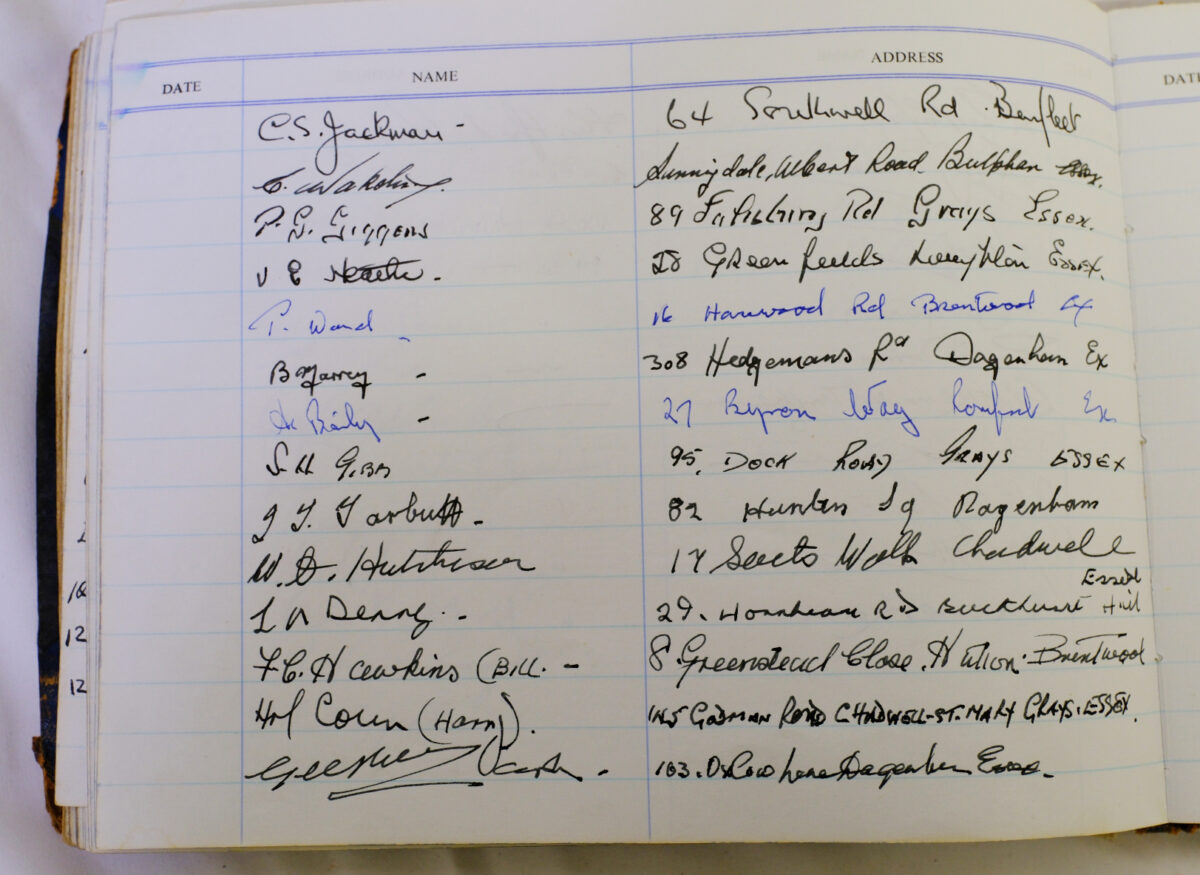 DATE NAME ADDRESS DATE
C.S. Jackman - 64 Southwell Rd. Benfleet
Sunnydale, Albert Road. Bulphan
P. G. Giggens 89 Rd Grays Essex.
V E 28 Greenfields Loughton Essex.
P. Ward - 16 Harwood Rd Brentwood Ex
B Marrey - 308 Hedgemans Rd Dagenham Ex
- 27 Byron Way Romford Ex
S H Gibb 95. DOCK ROAD GRAYS ESSEX
J. Tarbutt - 82 Hunters Sq Dagenham
W. Hutchison 17 Walk Chadwell
Essex
L A Denny. - 29. Hornbeam Rd Buckhurst Hill
F.C. Hawkins (BILL. - 8. Greenstead Close. Hutton. Brentwood
(Harry). 145 GODMAN ROAD CHADWELL-ST. MARY GRAYS. ESSEX.
- 103. Dagenham Essex.
12
12